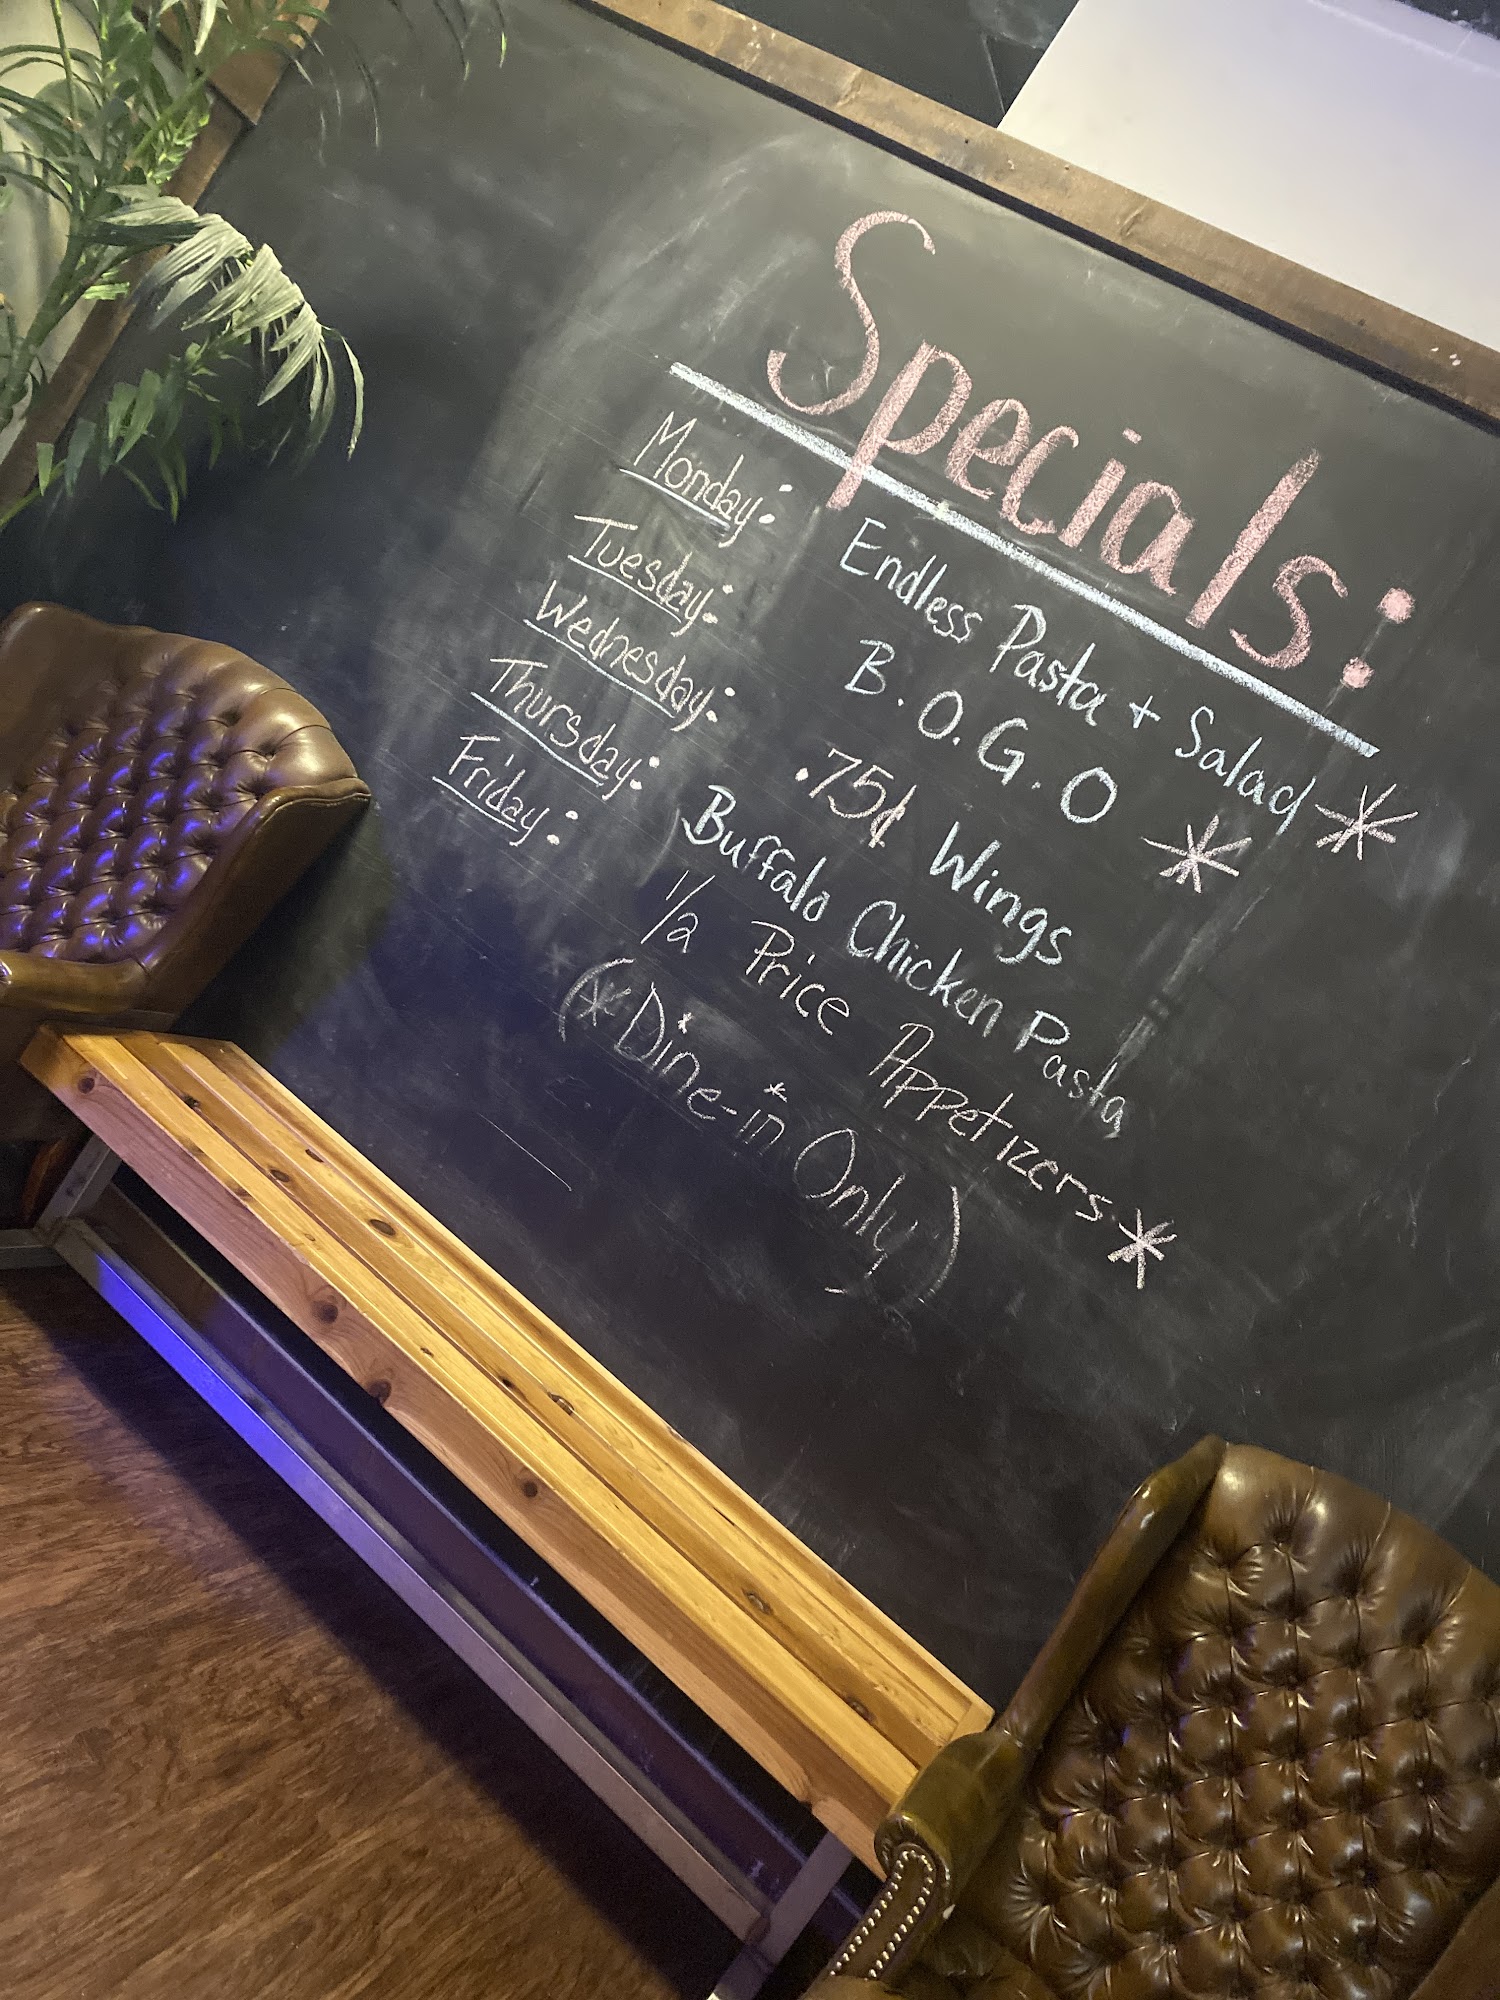 Specials:
Monday: Endless Pasta + Salad *
Tuesday: B.O.G.O *
Wednesday: .75¢ Wings
Thursday: Buffalo Chicken Pasta
Friday: 1/2 Price Appetizers *
(* Dine-in Only)